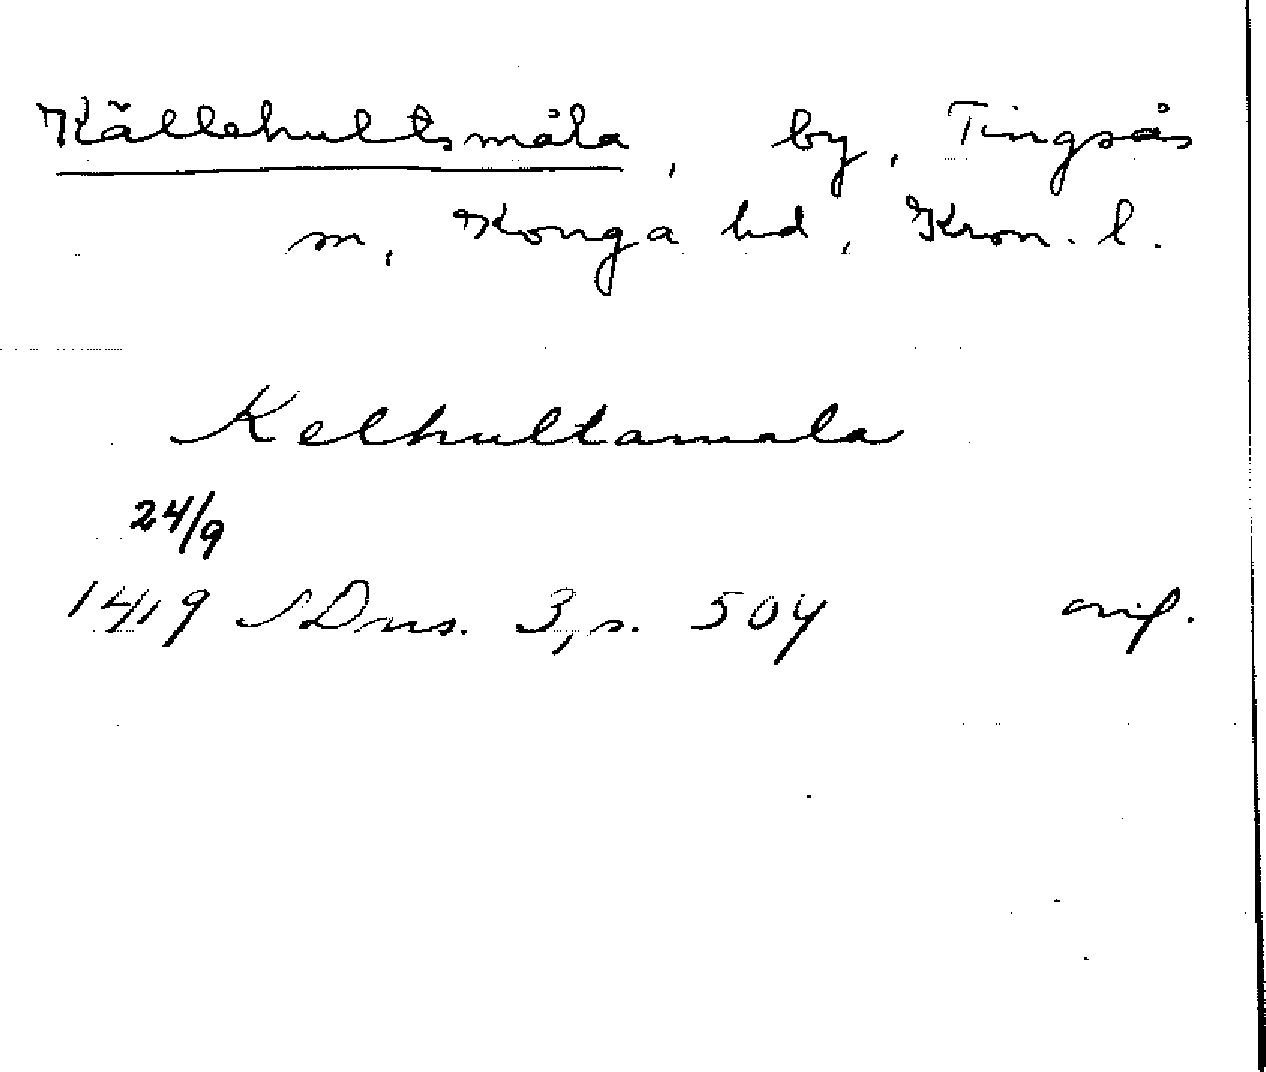 Källehultsmåla, by, Tingsås
sn, Konga hd, Kron. l.
Kelhultamala
24/9
1419 SDns. 3, s. 504 orig.